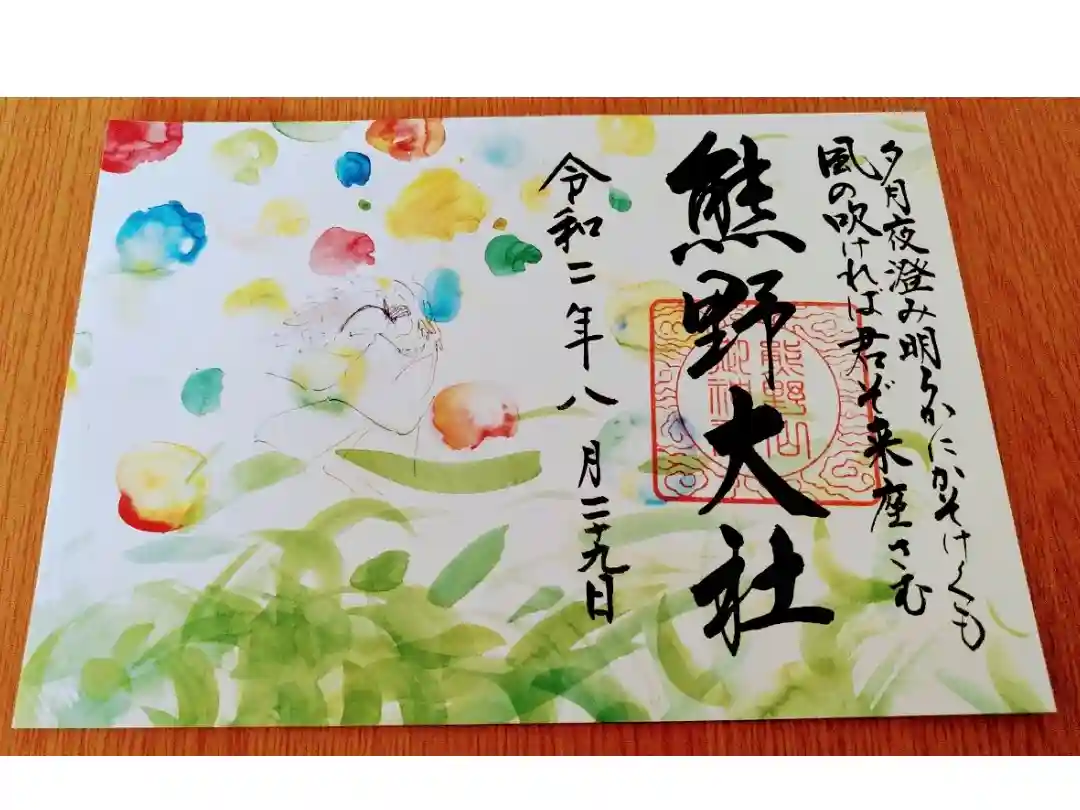 夕月夜澄み明らかにかそけくも
風の吹ければ君ぞ来座さむ
熊野大社
令和二年八月二十九日